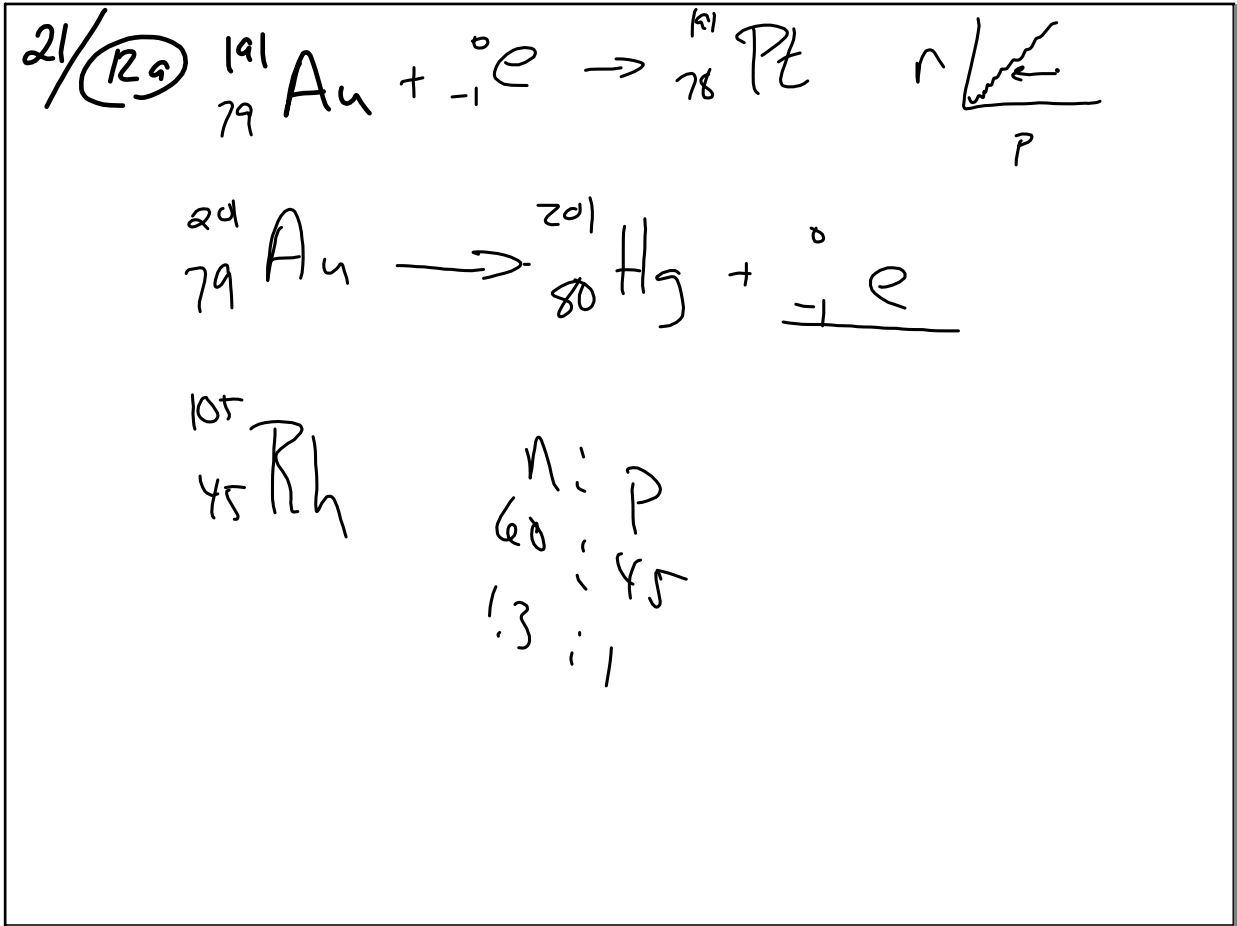 21/12a ¹⁹¹₇₉Au + ⁰₋₁e → ¹⁹¹₇₈Pt n p
²⁰¹₇₉Au → ²⁰¹₈₀Hg + ⁰₋₁e
¹⁰⁵₄₅Rh n : p
60 : 45
1.3 : 1